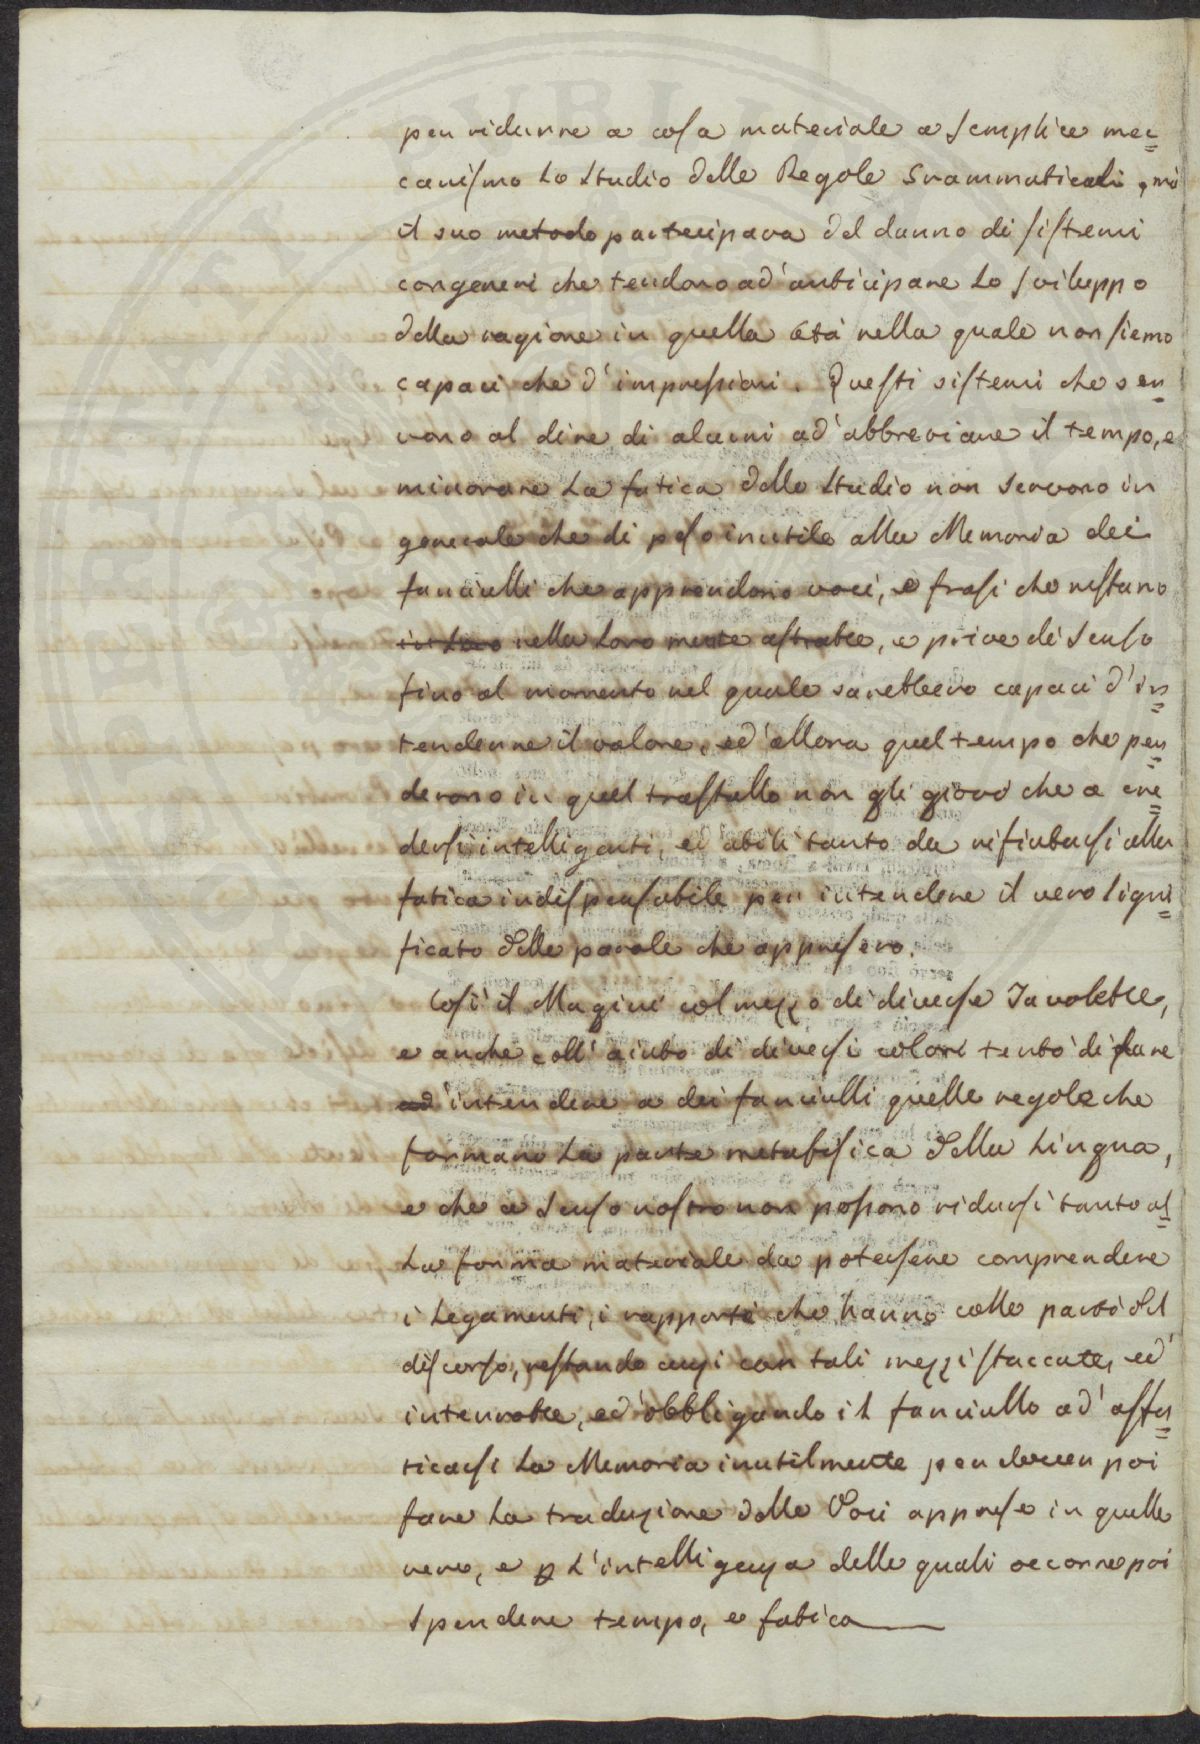 per ridurre a cosa materiale a semplice mec=
canismo lo studio delle Regole Grammaticali, mà
il suo metodo partecipava del danno di sistemi
congeneri che tendono ad'anticipare lo sviluppo
della ragione in quella età nella quale non siamo
capaci che d'impressioni. Questi sistemi che ser=
vono al dire di alcuni ad'abbreviare il tempo, e
minorare la fatica dello studio non servono in
generale che di peso inutile alla Memoria dei
fanciulli che apprendono voci, e frasi che restano
nella loro mente astratte, e prive di senso
fino al momento nel quale sarebbero capaci d'in=
tenderne il valore, ed'allora quel tempo che per=
derono in quel trastullo non gli giovò che a cre=
dersi intelligenti, ed abili tanto da rifiutarsi alla
fatica indispensabile per intendere il vero signi=
ficato delle parole che appresero.
Così il Magini col mezzo di diverse Tavolette,
e anche coll'aiuto di diversi colori tentò di fare
intendere a dei fanciulli quelle regole che
formano la parte metafisica della Lingua,
e che a senso nostro non possono ridursi tanto al=
la forma materiale da potersene comprendere
i legamenti, i rapporti che hanno colle parti del
discorso, restando anzi con tali mezzi staccate, ed'
interrotte, ed'obbligando il fanciullo ad'affa=
ticarsi la Memoria inutilmente per dover poi
fare la traduzione delle Voci apprese in quelle
vere, e p l'intelligenza delle quali occorre poi
spendere tempo, e fatica